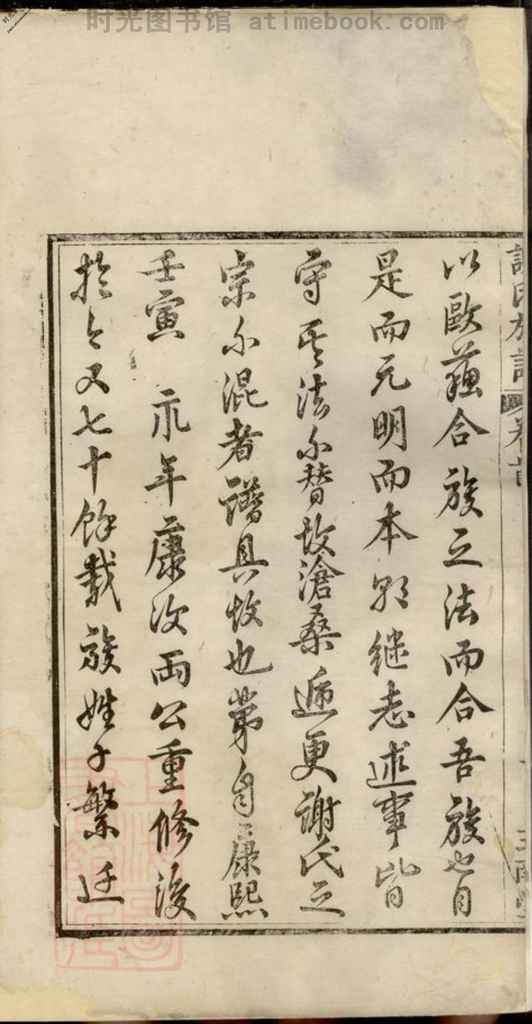 时光图书馆 atimebook.com
以歐蘓合族之法而合吾族也自
是而元明而本朝継志述事皆
守其法不替故滄桑遞更謝氏之
宗不混者譜具故也第自康熙
壬寅 永年康次両公重修後
於今又七十餘載族姓子繁迁